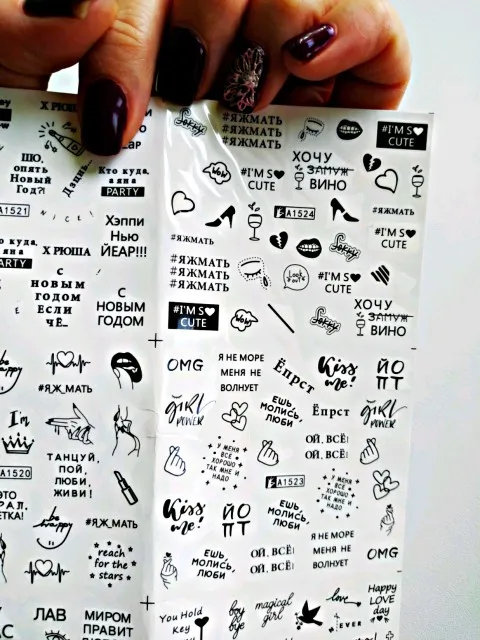 Х РЮША
ШО,
опять
Новый
Год?!
Дзинь...
Кто куда,
а я на
PARTY
A1521
NICE!
Хэппи
Нью
ЙЕАР!!!
куда,
а я на
Х РЮША
С
НОВЫМ
ГОДОМ
ЕСЛИ
ЧЁ...
С
НОВЫМ
ГОДОМ
Sorry
#ЯЖМАТЬ
#ЯЖМАТЬ
#ЯЖМАТЬ
#I'M S♥
CUTE
Wow
#I'M S♥
CUTE
ХОЧУ
ЗАМУЖ
ВИНО
A1524
#ЯЖМАТЬ
#I'M S♥
CUTE
#ЯЖМАТЬ
Sorry
#ЯЖМАТЬ
#ЯЖМАТЬ
#ЯЖМАТЬ
Look
out!
#I'M S♥
CUTE
#I'M S♥
CUTE
Wow
Sorry
ХОЧУ
ЗАМУЖ
ВИНО
be
happy
#ЯЖ_МАТЬ
I'm
ТАНЦУЙ,
ПОЙ,
ЛЮБИ,
ЖИВИ!
A1520
be
happy
#ЯЖ_МАТЬ
reach
for the
stars
ЛАВ
МИРОМ
ПРАВИТ
OMG
Я НЕ МОРЕ
МЕНЯ НЕ
ВОЛНУЕТ
Ёпрст
Kiss
me!
ЙО
ПТ
GIRL
POWER
ЕШЬ
МОЛИСЬ,
ЛЮБИ
Ёпрст
GIRL
POWER
У МЕНЯ
ВСЕ
ХОРОШО
ТАК МНЕ И
НАДО
ОЙ, ВСЁ!
ОЙ, ВСЁ!
A1523
У МЕНЯ
ВСЕ
ХОРОШО
ТАК МНЕ И
НАДО
Kiss
me!
ЙО
ПТ
ЕШЬ
МОЛИСЬ,
ЛЮБИ
Я НЕ МОРЕ
МЕНЯ НЕ
ВОЛНУЕТ
ЕШЬ
МОЛИСЬ,
ЛЮБИ
ОЙ, ВСЁ!
ОЙ, ВСЁ!
OMG
You Hold
Key
boy
bye
magical
girl
love
EVER
Happy
LOVE
day